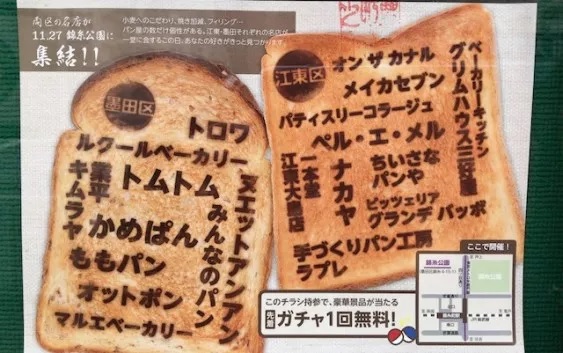 両区の名店が
11.27 錦糸公園に
集結!!
小麦へのこだわり、焼き加減、フィリング…
パン屋の数だけ個性がある。江東・墨田それぞれの名店が
一堂に会するこの日、あなたの好きがきっと見つかります。
墨田区
トロワ
ルクールベーカリー
業平
キムラヤ
トムトム
かめぱん
ももパン
オットポン
マルエベーカリー
みんなのパン
ヌエットアンアン
江東区
オン ザ カナル
メイカセブン
パティスリーコラージュ
ペル・エ・メル
ベーカリーキッチン
グリムハウス三好通
一本堂
江東大島店
ナカヤ
ちいさな
パンや
ピッツェリア
グランデ バッボ
手づくりパン工房
ラプレ
このチラシ持参で、豪華景品が当たる
先着
ガチャ1回無料!
ここで開催!
錦糸公園